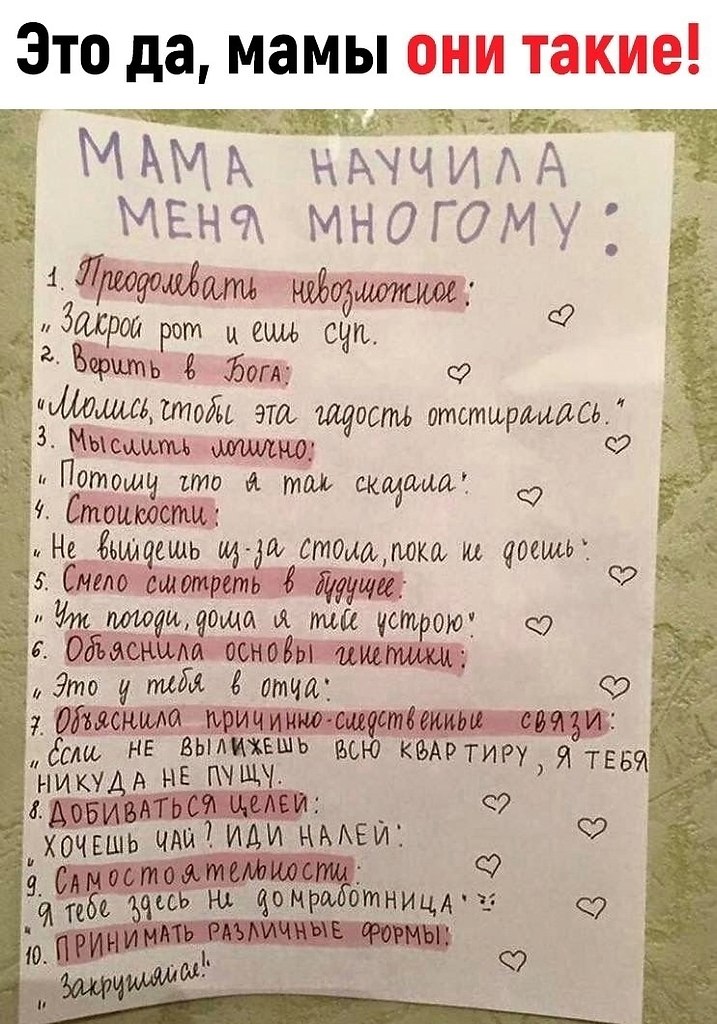 Это да, мамы они такие!
МАМА НАУЧИЛА
МЕНЯ МНОГОМУ:
1. Преодолевать невозможное:
„Закрой рот и ешь суп.
2. Верить в Бога:
"Молись, чтобы эта гадость отстиралась."
3. Мыслить логично:
„Потому что я так сказала".
4. Стойкости:
„Не выйдешь из-за стола, пока не доешь".
5. Смело смотреть в будущее:
„Уж погоди, дома я тебе устрою"
6. Объяснила основы генетики:
„Это у тебя в отца".
7. Объяснила причинно-следственные связи:
„Если НЕ ВЫЛИЖЕШЬ ВСЮ КВАРТИРУ, Я ТЕБЯ
НИКУДА НЕ ПУЩУ.
8. ДОБИВАТЬСЯ ЦЕЛЕЙ:
„ХОЧЕШЬ ЧАЙ? ИДИ НАЛЕЙ".
9. Самостоятельности:
"Я тебе здесь не домработница"
10. ПРИНИМАТЬ РАЗЛИЧНЫЕ ФОРМЫ:
„Закругляйся!"